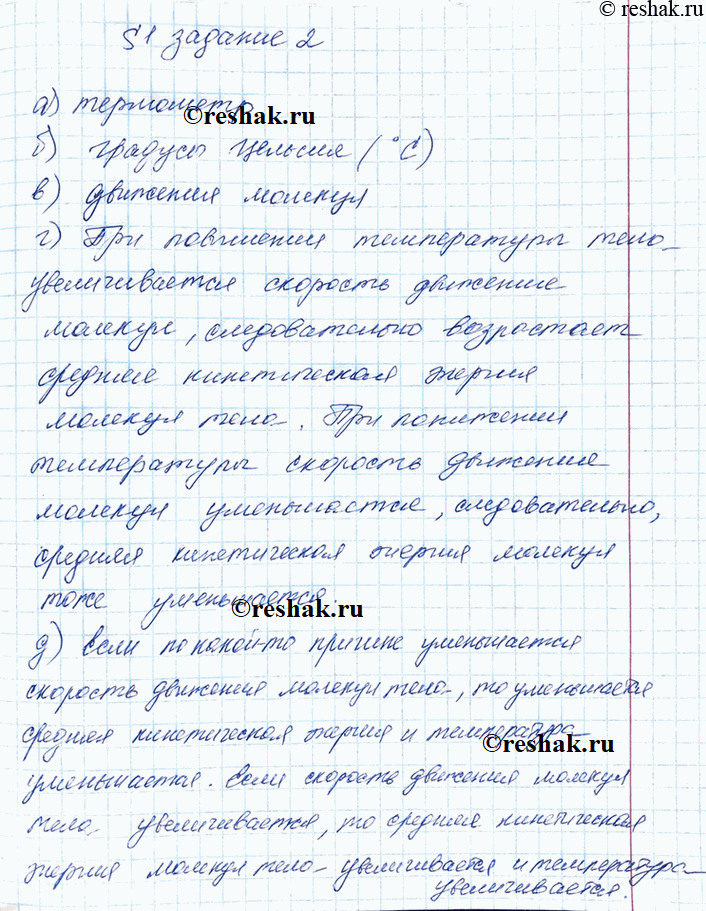 © reshak.ru
§1 задание 2
а) термометр
©reshak.ru
б) градусы Цельсия (°С)
в) движения молекул
г) При повышении температуры тела
увеличивается скорость движение
молекул, следовательно возрастает
средняя кинетическая энергия
молекул тела. При понижении
температуры скорость движения
молекул уменьшается, следовательно,
средняя кинетическая энергия молекул
тоже уменьшается.
©reshak.ru
д) Если по какой-то причине уменьшается
скорость движения молекул тела, то уменьшается
средняя кинетическая энергия и температура
©reshak.ru
уменьшается. Если скорость движения молекул
тела увеличивается, то средняя кинетическая
энергия молекул тела увеличивается и температура
увеличивается.